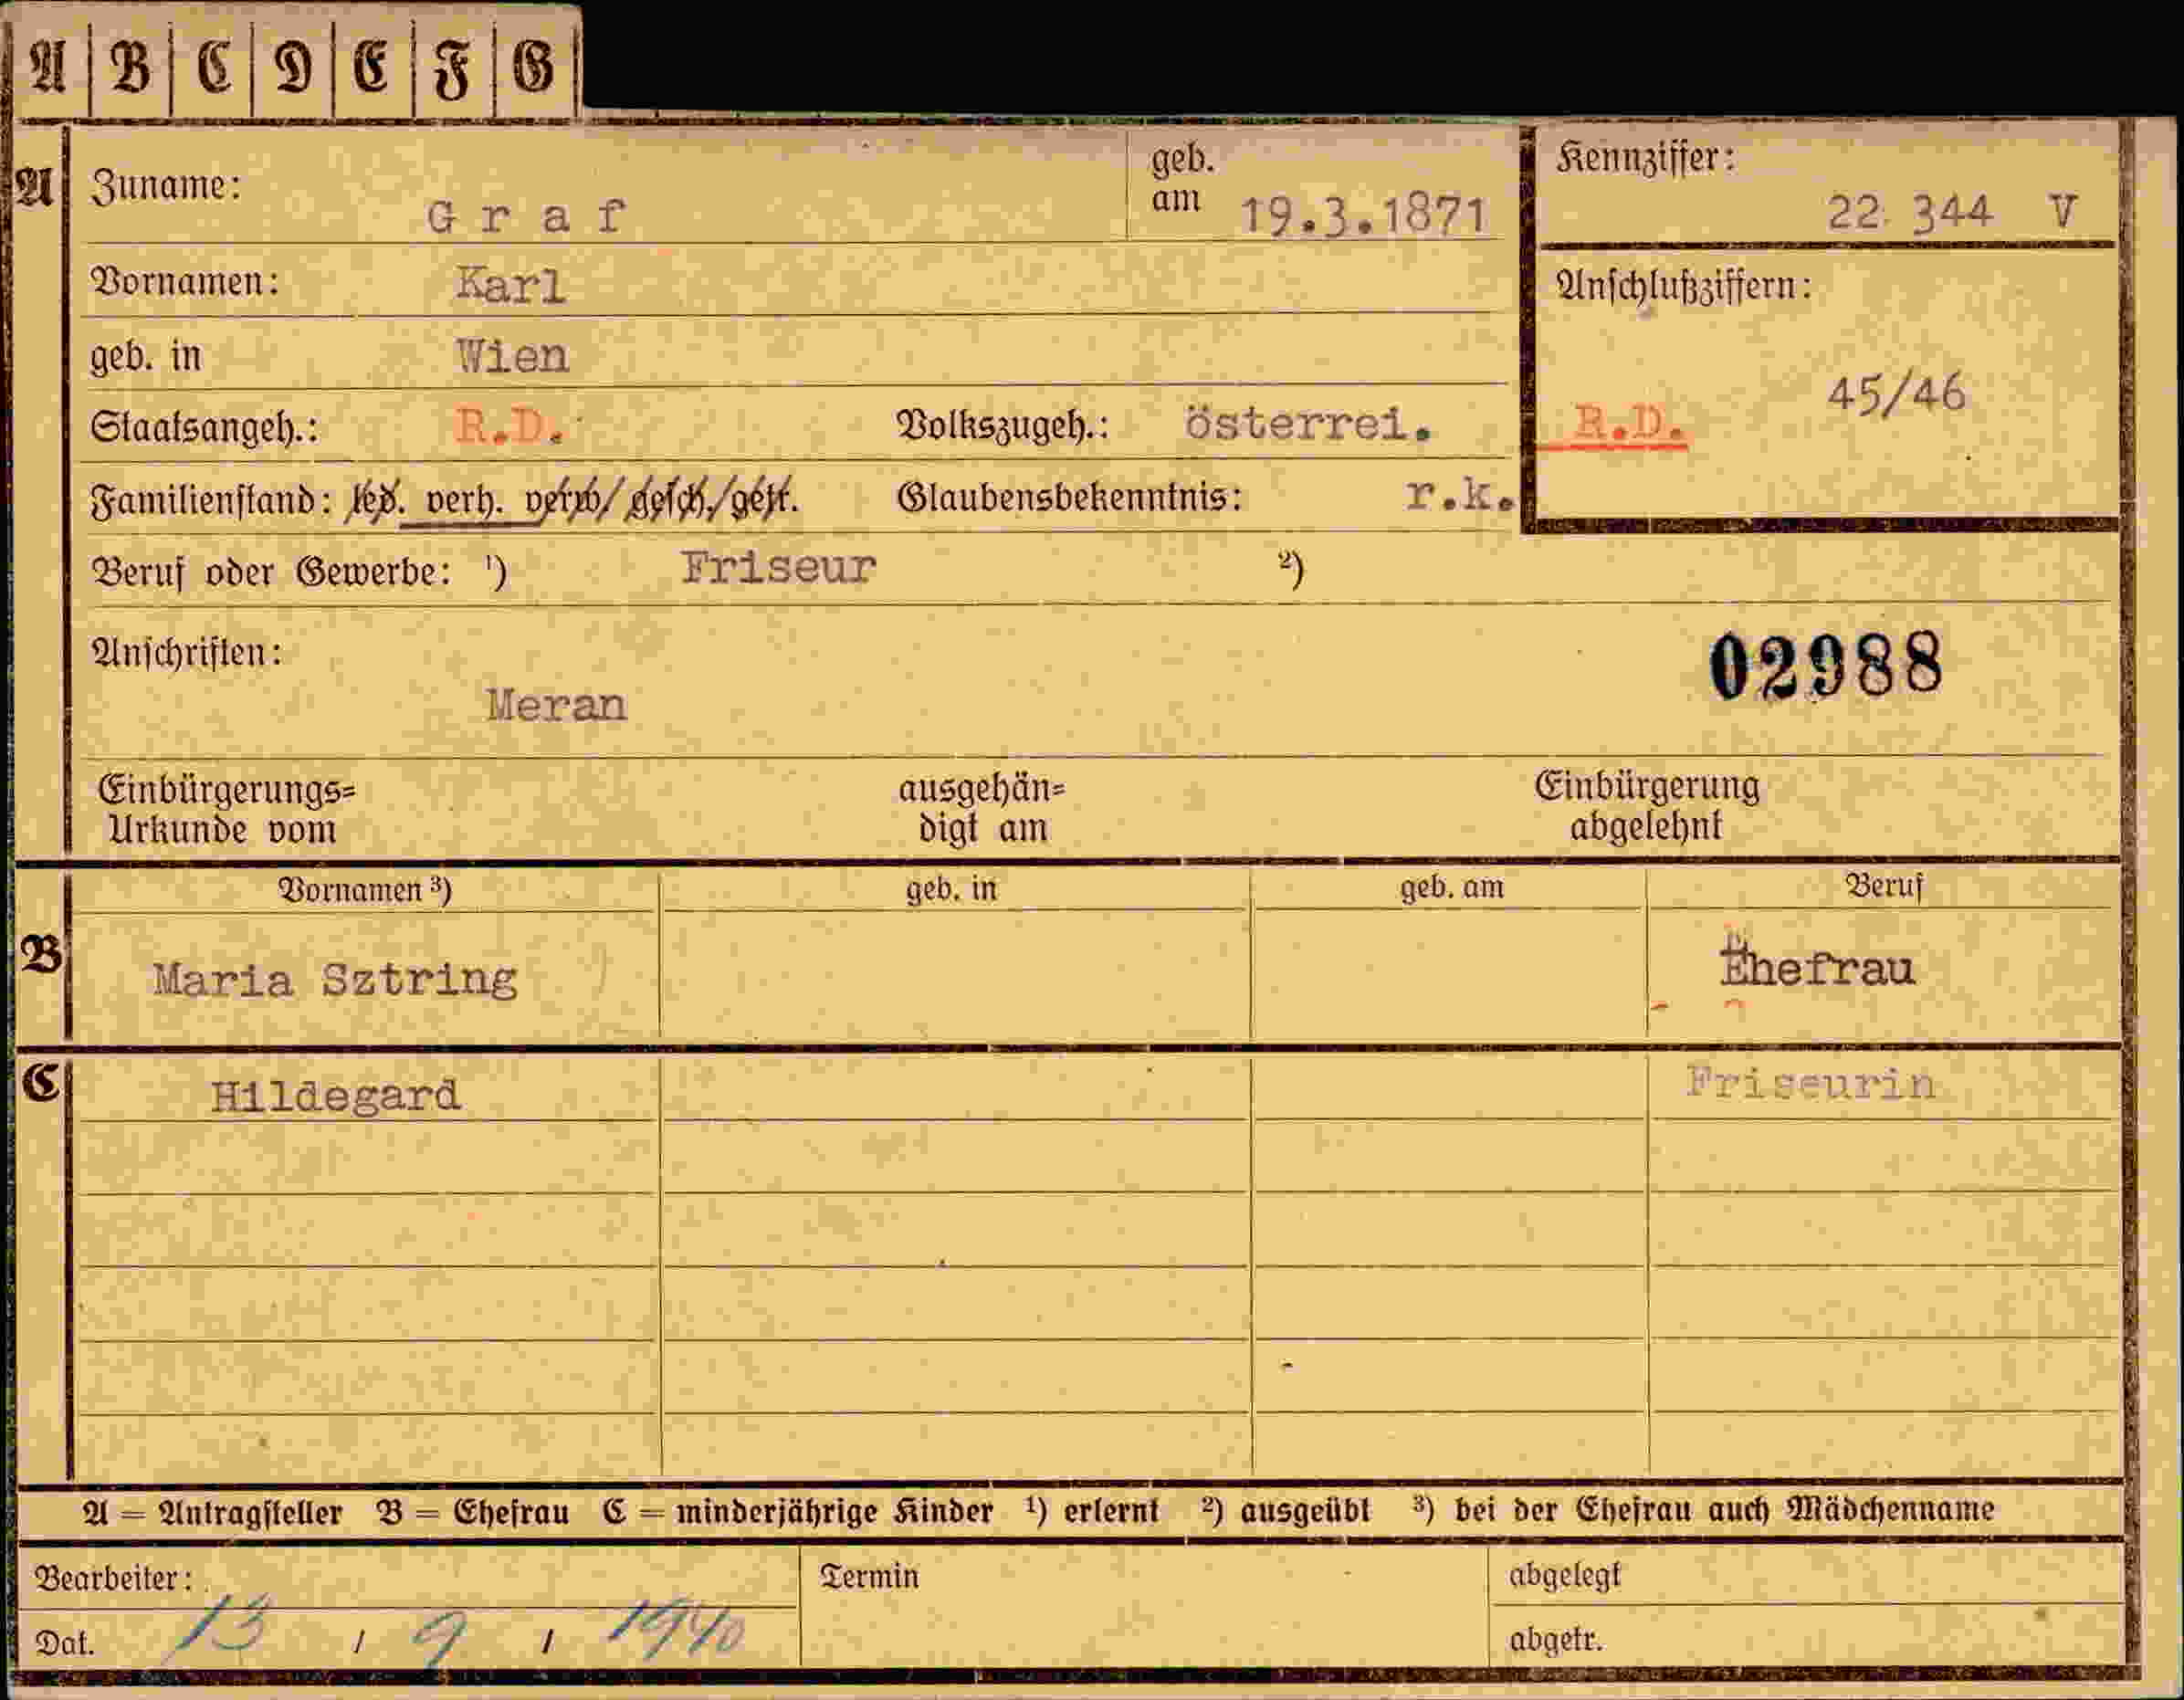 A B C D E F G
A Zuname: Graf geb. am 19.3.1871 Kennziffer: 22 344 V
Vornamen: Karl Anschlußziffern:
geb. in Wien 45/46
Staatsangeh.: R.D. Volkszugeh.: österrei. R.D.
Familienstand: led. verh. verw/ gesch./getr. Glaubensbekenntnis: r.k.
Beruf oder Gewerbe: ¹) Friseur ²)
Anschriften: 02988
Meran
Einbürgerungs= ausgehän= Einbürgerung
Urkunde vom digt am abgelehnt
Vornamen ³) geb. in geb. am Beruf
B Maria Sztring Ehefrau
C Hildegard Friseurin
A = Antragsteller B = Ehefrau C = minderjährige Kinder ¹) erlernt ²) ausgeübt ³) bei der Ehefrau auch Mädchenname
Bearbeiter: Termin abgelegt
Dat. 13 / 9 / 1940 abgetr.